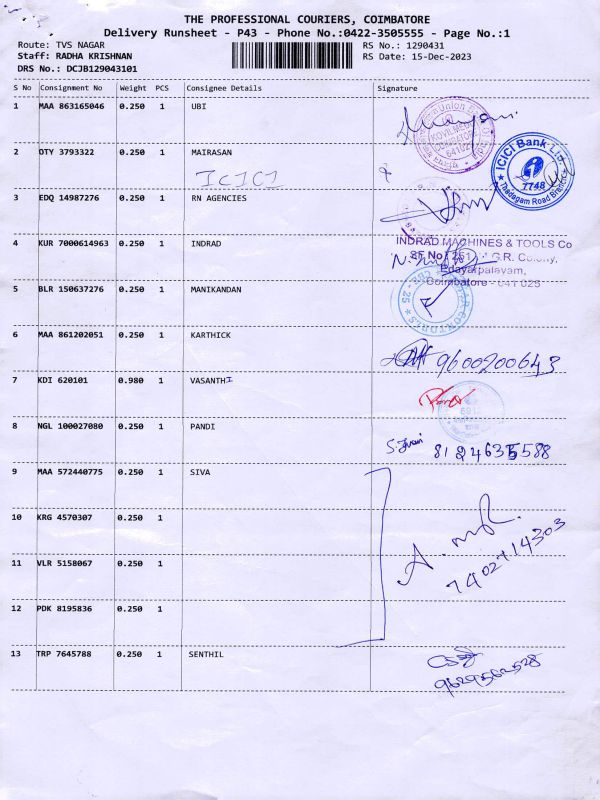 THE PROFESSIONAL COURIERS, COIMBATORE
Delivery Runsheet - P43 - Phone No.:0422-3505555 - Page No.:1
Route: TVS NAGAR RS No.: 1290431
Staff: RADHA KRISHNAN RS Date: 15-Dec-2023
DRS No.: DCJB129043101
S No Consignment No Weight PCS Consignee Details Signature
1 MAA 863165046 0.250 1 UBI
2 OTY 3793322 0.250 1 MAIRASAN
ICICI
ICICI Bank Ltd
7748
Thadagam Road Branch
3 EDQ 14987276 0.250 1 RN AGENCIES
4 KUR 7000614963 0.250 1 INDRAD
INDRAD MACHINES & TOOLS Co
SF.No: 251 G.R. Colony,
Edayarpalayam,
Coimbatore - 641 025
5 BLR 150637276 0.250 1 MANIKANDAN
6 MAA 861202051 0.250 1 KARTHICK
9600200643
7 KDI 620101 0.980 1 VASANTHI
8 NGL 100027080 0.250 1 PANDI
8124635588
9 MAA 572440775 0.250 1 SIVA
10 KRG 4570307 0.250 1
11 VLR 5158067 0.250 1
7402714303
12 PDK 8195836 0.250 1
13 TRP 7645788 0.250 1 SENTHIL
9629562528